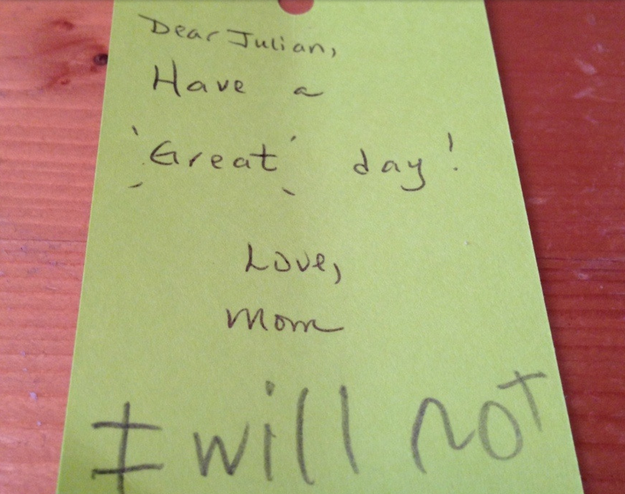 Dear Julian,
Have a
Great day!
Love,
Mom
I will not